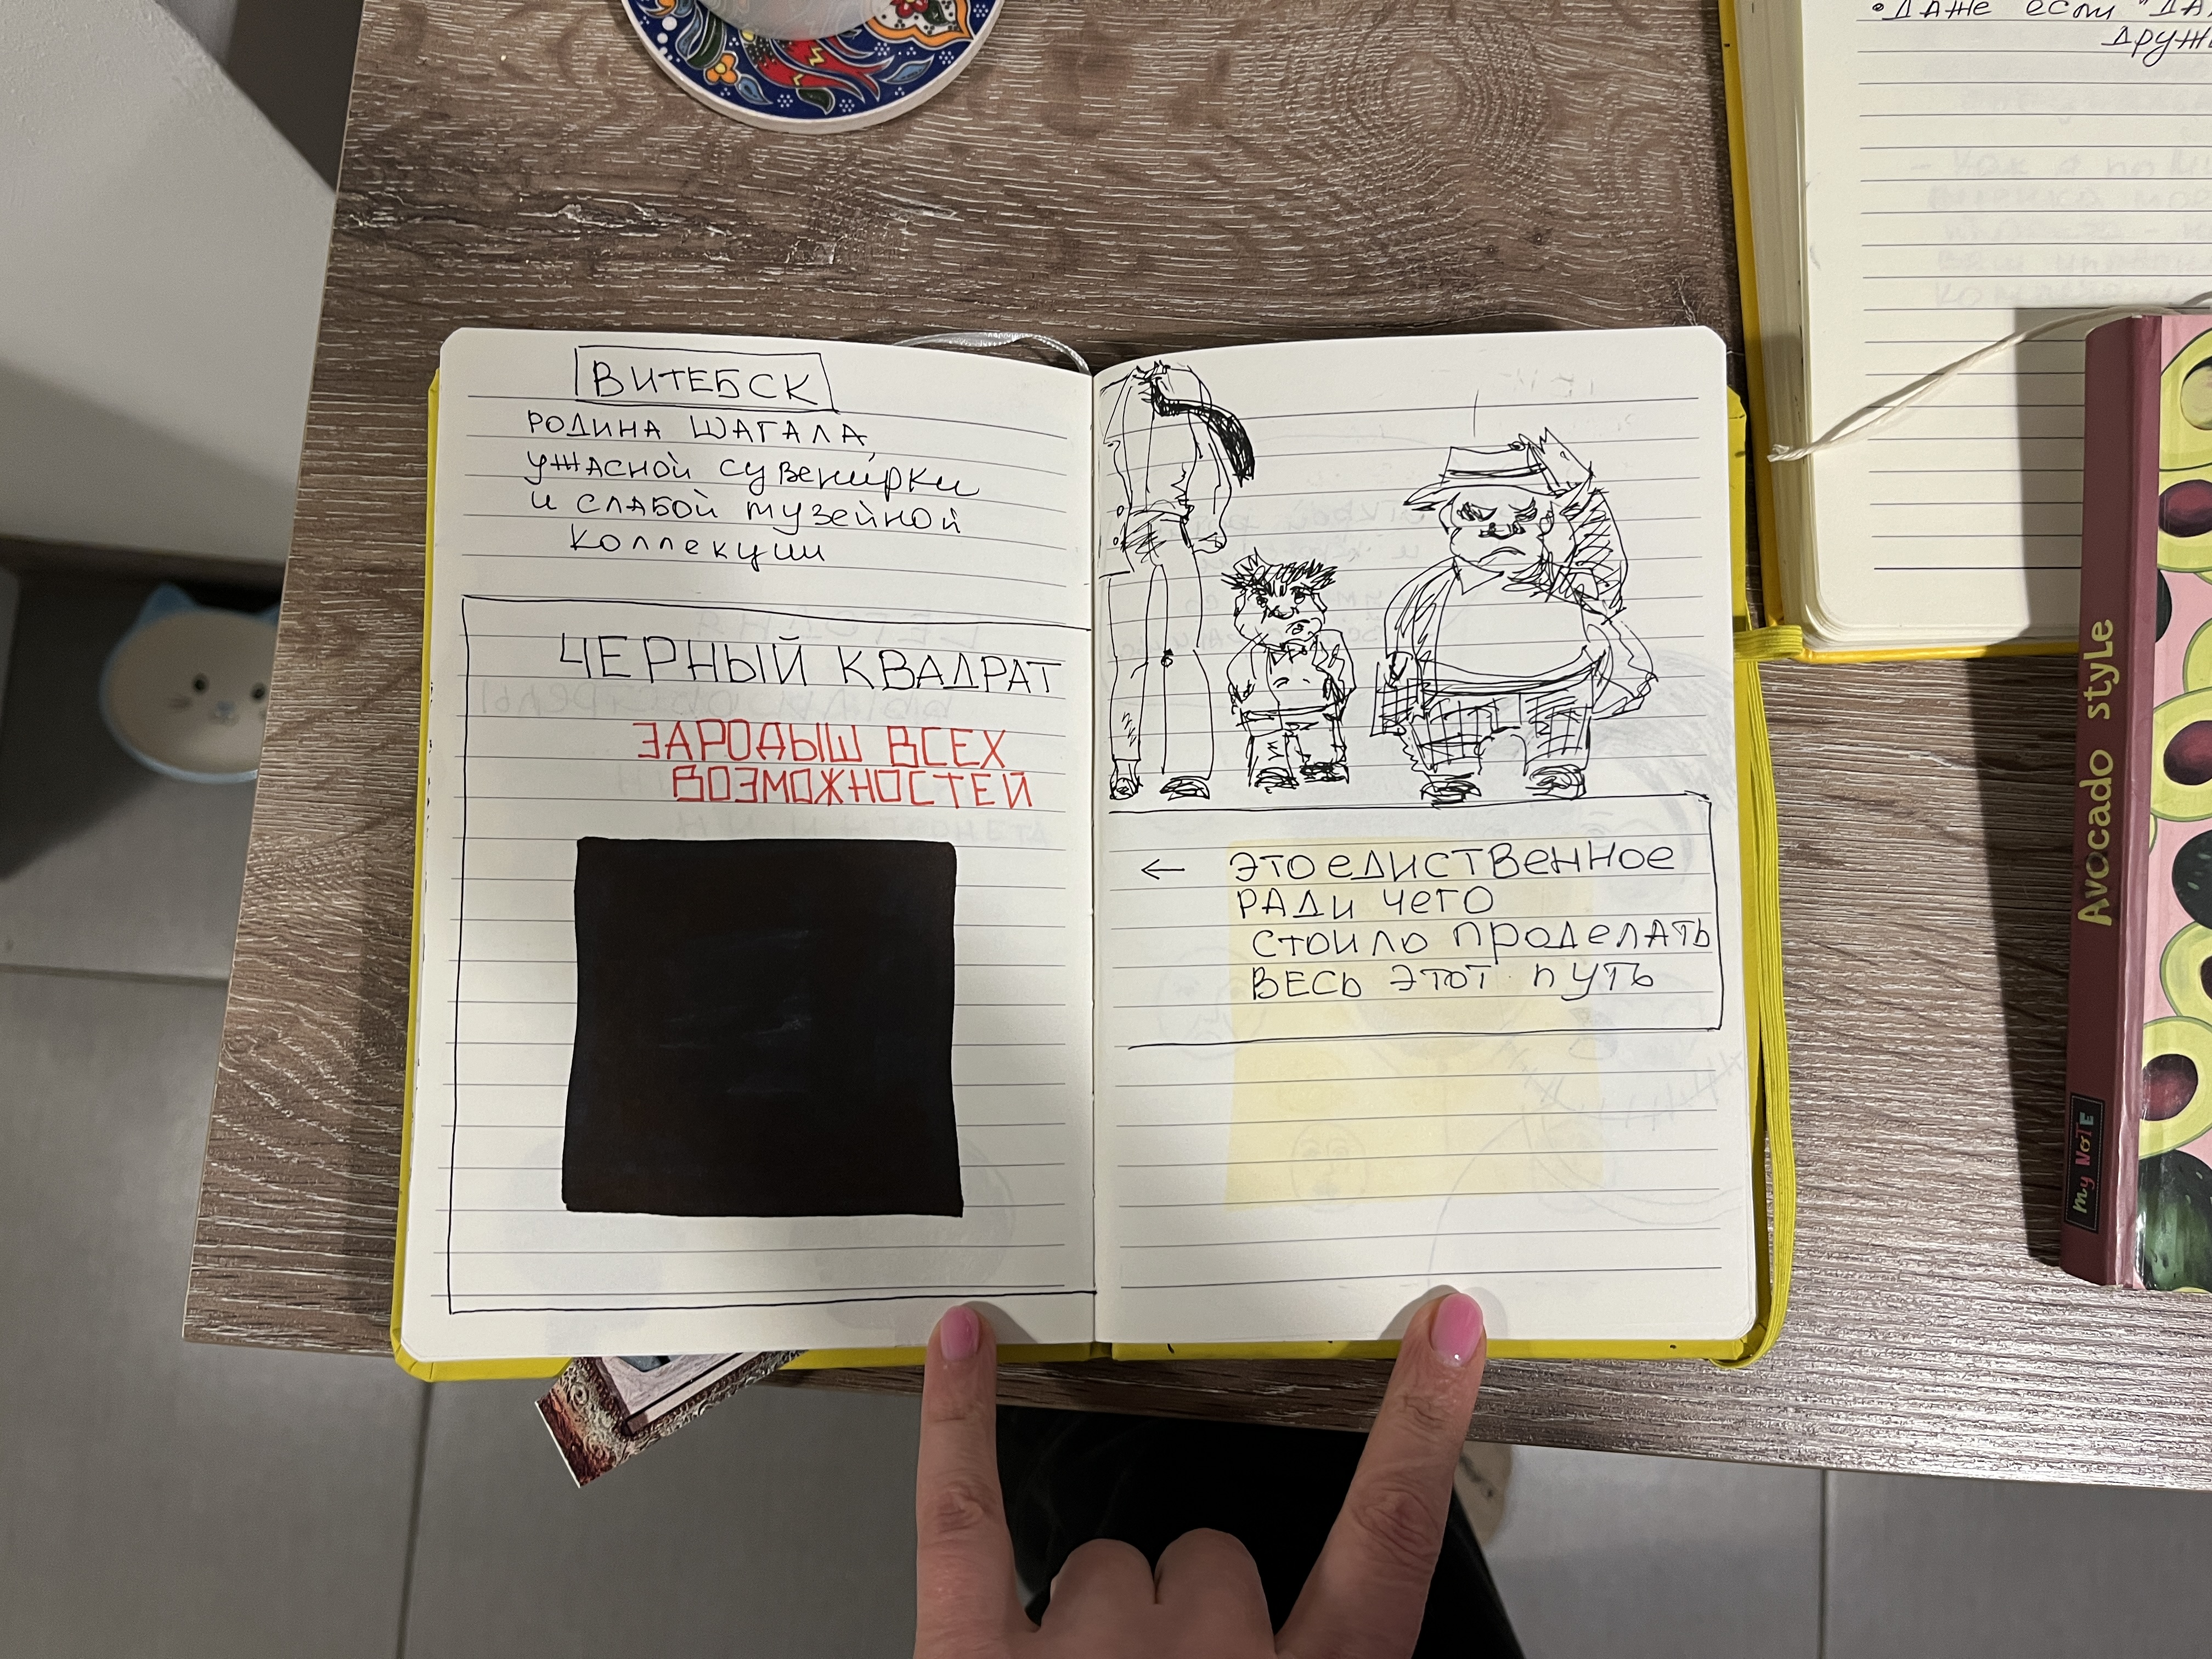 ВИТЕБСК
РОДИНА ШАГАЛА,
УЖАСНОЙ СУВЕНИРКИ
И СЛАБОЙ МУЗЕЙНОЙ
КОЛЛЕКЦИИ
ЧЕРНЫЙ КВАДРАТ
ЗАРОДЫШ ВСЕХ
ВОЗМОЖНОСТЕЙ
← ЭТО ЕДИСТВЕННОЕ
РАДИ ЧЕГО
СТОИЛО ПРОДЕЛАТЬ
ВЕСЬ ЭТОТ ПУТЬ
• ДАЖЕ ЕСЛИ
Avocado style
My NOTE